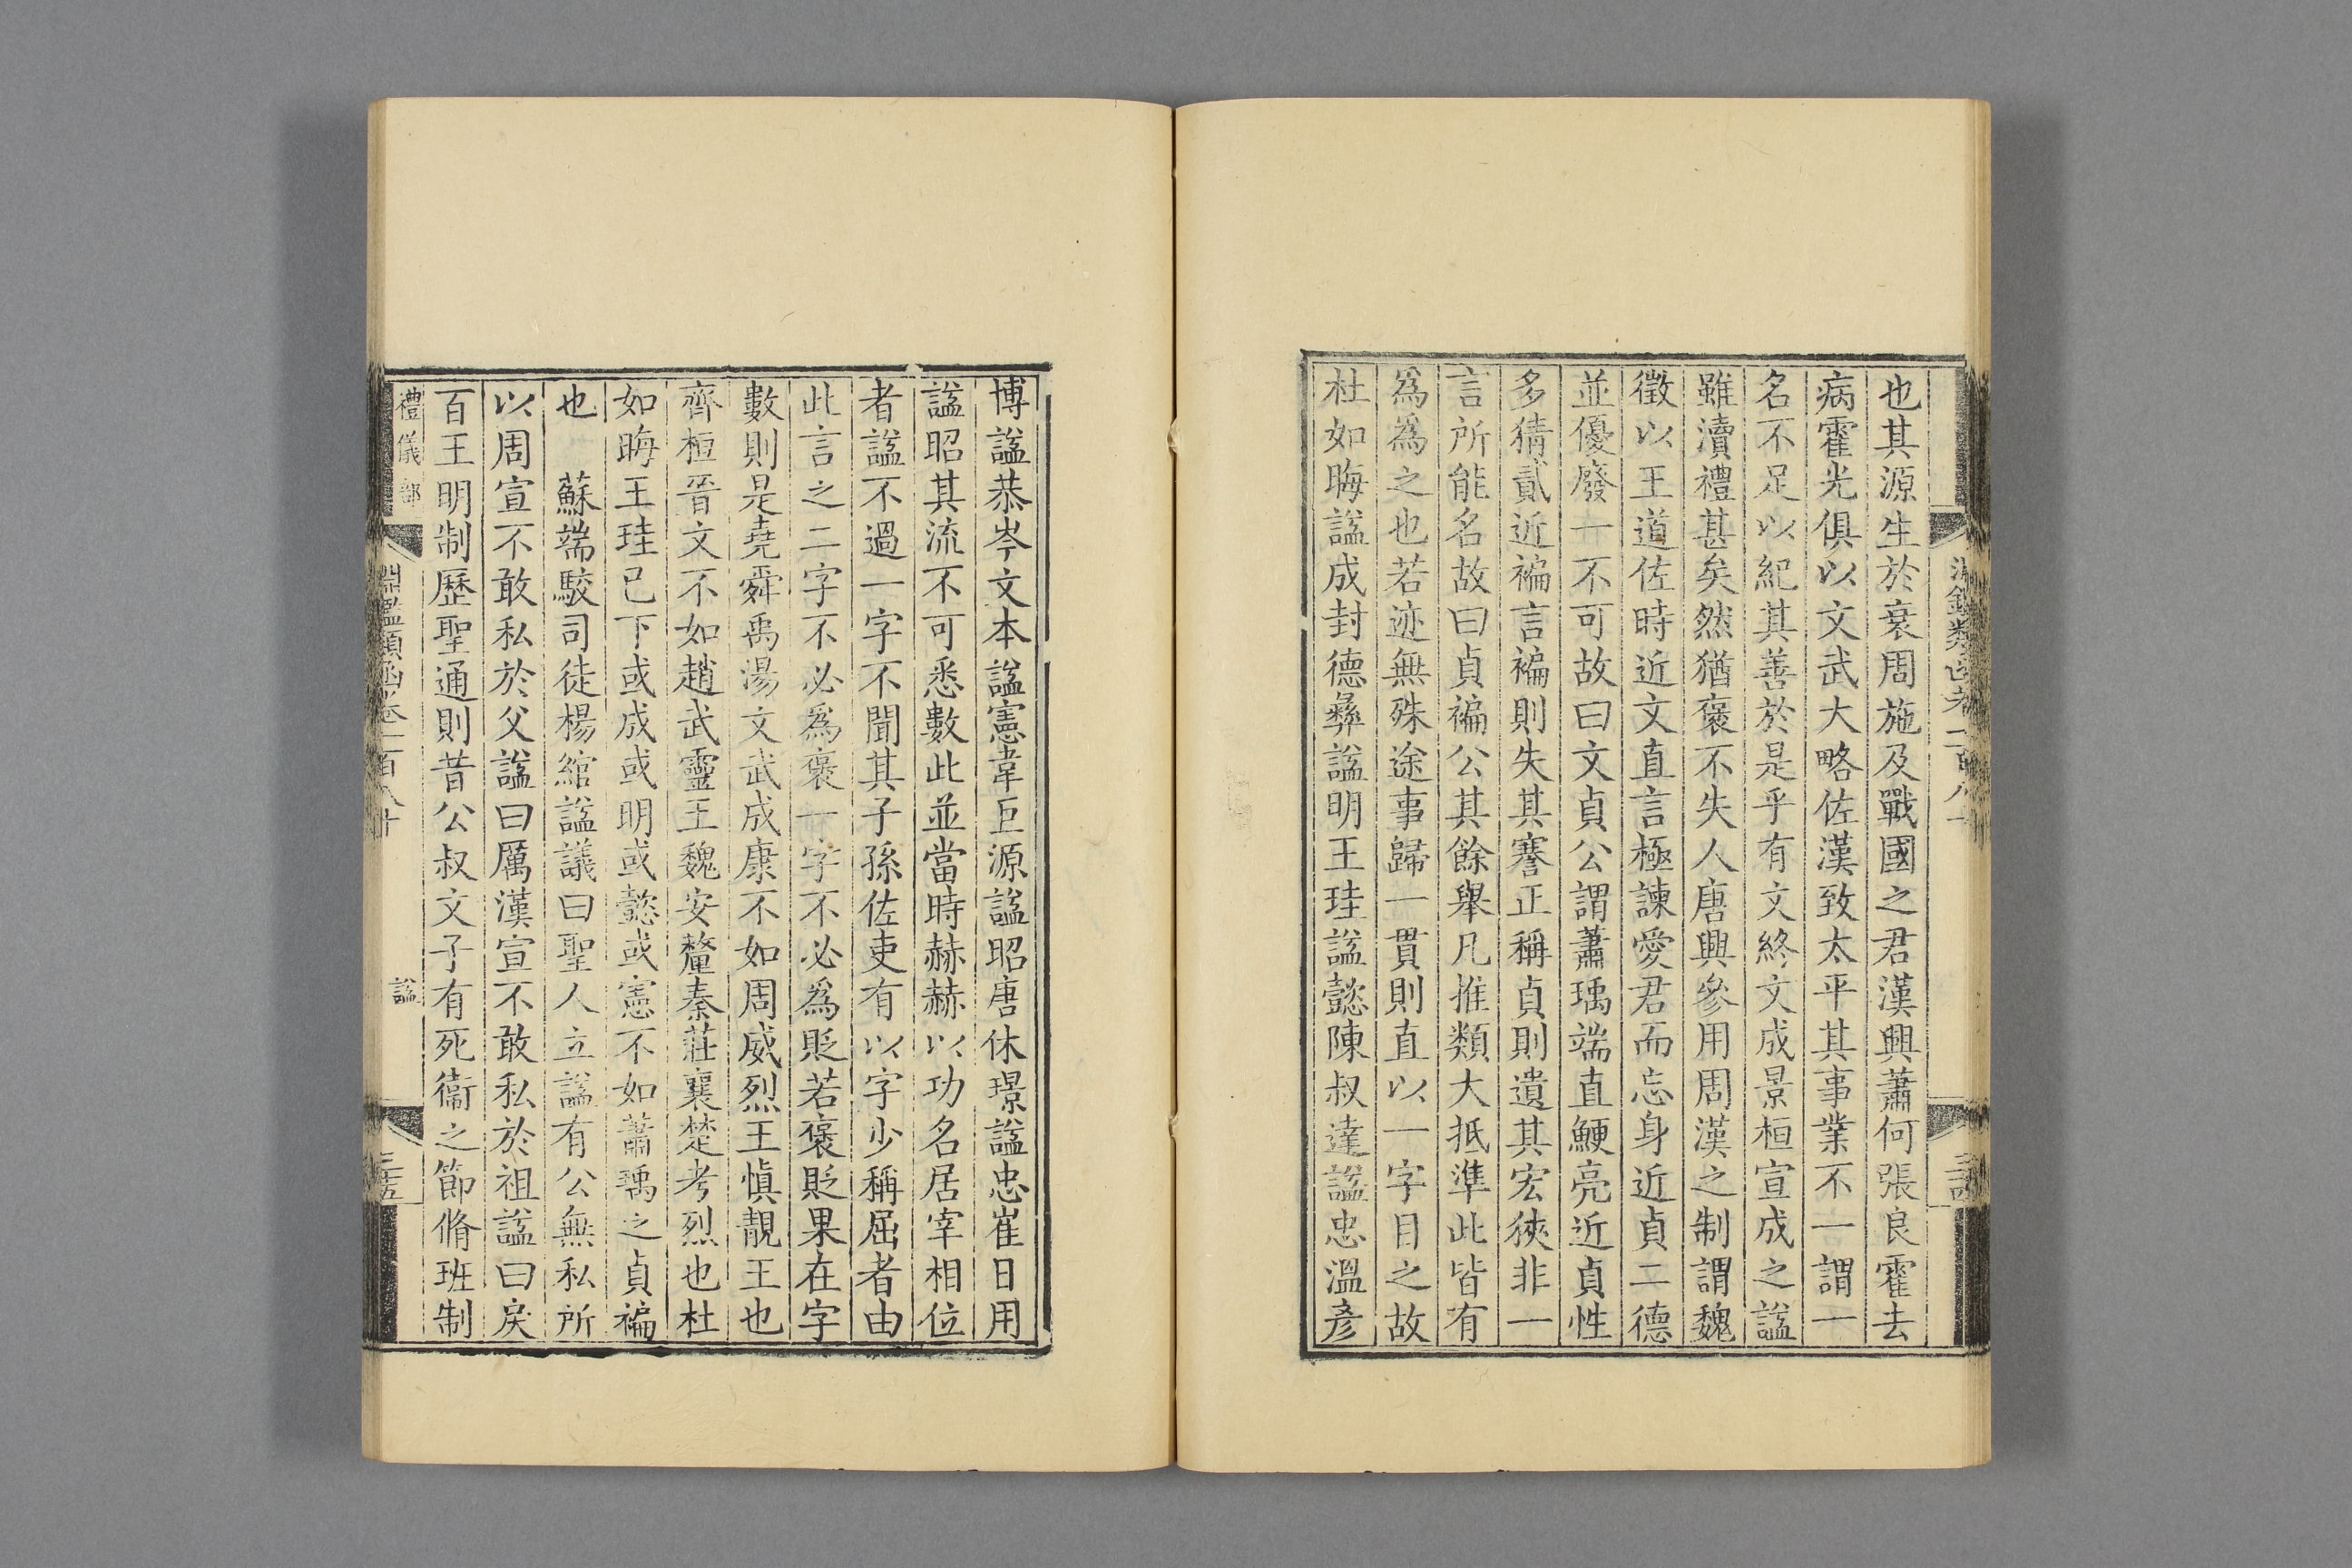 也其源生於衰周施及戰國之君漢興蕭何張良霍去
病霍光俱以文武大略佐漢致太平其事業不一謂一
名不足以紀其善於是乎有文終文成景桓宣成之諡
雖瀆禮甚矣然猶褒不失人唐興參用周漢之制謂魏
徵以王道佐時近文直言極諫愛君而忘身近貞二德
並優廢一不可故曰文貞公謂蕭瑀端直鯁亮近貞性
多猜貳近褊言褊則失其謇正稱貞則遺其宏狹非一
言所能名故曰貞褊公其餘舉凡推類大抵準此皆有
為為之也若迹無殊途事歸一貫則直以一字目之故
杜如晦諡成封德彞諡明王珪諡懿陳叔達諡忠溫彥
博諡恭岑文本諡憲韋巨源諡昭唐休璟諡忠崔日用
諡昭其流不可悉數此並當時赫赫以功名居宰相位
者諡不過一字不聞其子孫佐吏有以字少稱屈者由
此言之二字不必為褒一字不必為貶若褒貶果在字
數則是堯舜禹湯文武成康不如周威烈王慎靚王也
齊桓晉文不如趙武靈王魏安釐秦莊襄楚考烈也杜
如晦王珪已下或成或明或懿或憲不如蕭瑀之貞褊
也 蘇端駁司徒楊綰諡議曰聖人立諡有公無私所
以周宣不敢私於父諡曰厲漢宣不敢私於祖諡曰戾
百王明制歷聖通則昔公叔文子有死衞之節脩班制
禮儀部 淵鑑類函卷一百八十 諡 三十五